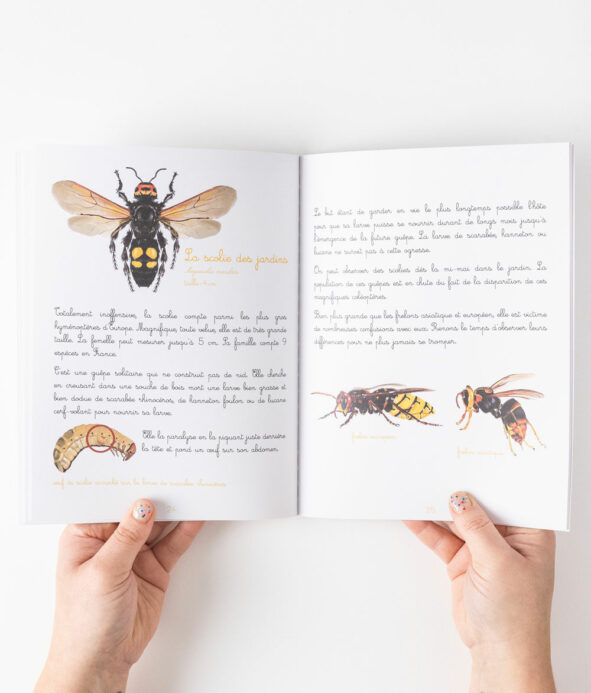 La scolie des jardins
taille 4 cm
Totalement inoffensive, la scolie compte parmi les plus gros
hyménoptères d'Europe. Magnifique, toute velue, elle est de très grande
taille. La femelle peut mesurer jusqu'à 5 cm. La famille compte 9
espèces en France.
C'est une guêpe solitaire que ne construit pas de nid. Elle cherche
en creusant dans une souche de bois mort une larve bien grasse et
bien dodue de scarabée rhinocéros, de hanneton foulon ou de lucane
cerf-volant pour nourrir sa larve.
Elle la paralyse en la piquant juste derrière
la tête et pond un œuf sur son abdomen.
œuf de scolie accroché sur la larve de scarabée rhinocéros
24
Le but étant de garder en vie le plus longtemps possible l'hôte
pour que sa larve puisse se nourrir durant de longs mois jusqu'à
l'émergence de la future guêpe. La larve de scarabée, hanneton ou
lucane ne survit pas à cette ogresse.
On peut observer des scolies dès la mi-mai dans le jardin. La
population de ces guêpes est en chute du fait de la disparition de ces
magnifiques coléoptères.
Bien plus grande que les frelons asiatique et européen, elle est victime
de nombreuses confusions avec eux. Prenons le temps d'observer leurs
différences pour ne plus jamais se tromper.
frelon européen
frelon asiatique
25